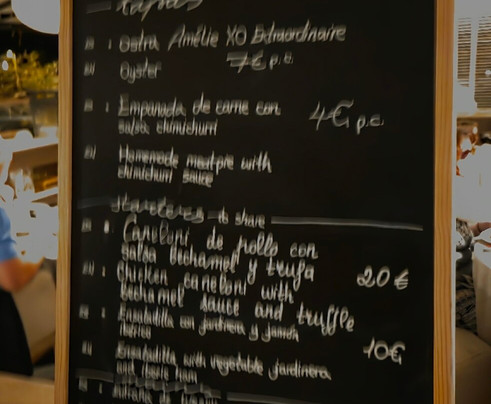 Tapas
Ostra Amélie XO Edraordinaire
Oyster 7€ p.c.
Empanada de carne con 4€ p.c.
salsa chimichurri
Homemade meatpie with
chimichurri sauce
to share
Caneloni de pollo con
salsa bechamel y trufa 20€
Chicken caneloni with
bechamel sauce and truffle
Ensaladilla con jardinera y 10€
with vegetable jardinera
and